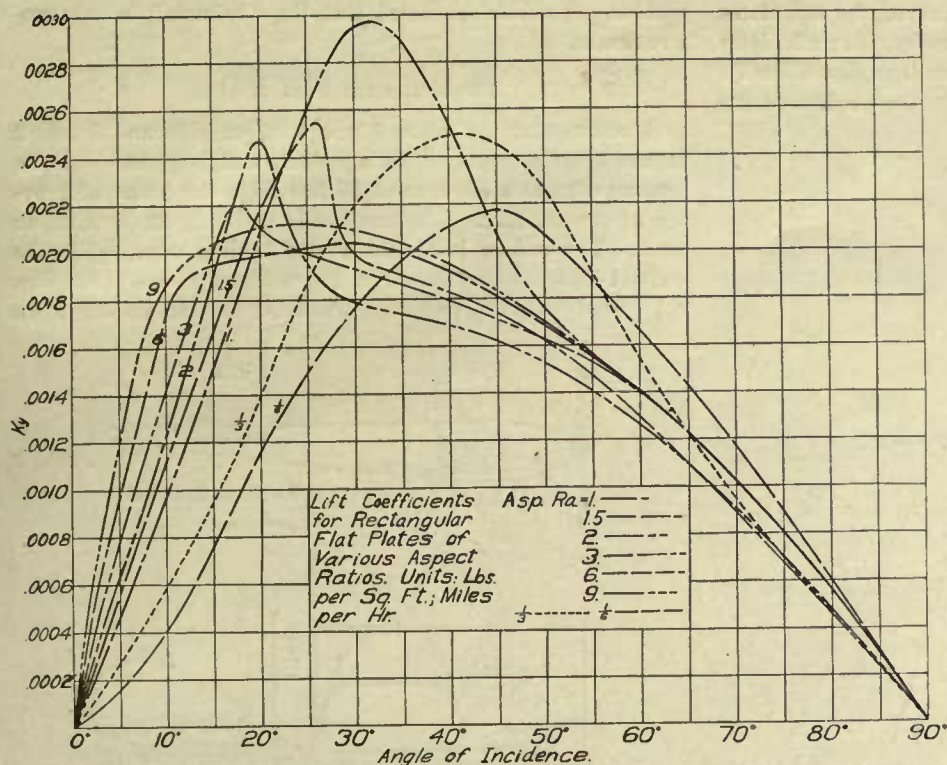 .0030
.0028
.0026
.0024
.0022
.0020
.0018
.0016
.0014
.0012
.0010
.0008
.0006
.0004
.0002
Ky
9
6
3
1.5
2
1.
1/3
1/6
Lift Coefficients
for Rectangular
Flat Plates of
Various Aspect
Ratios. Units: Lbs.
per Sq. Ft.; Miles
per Hr.
Asp. Ra=1.
1.5
2.
3.
6.
9.
1/3 1/6
0° 10° 20° 30° 40° 50° 60° 70° 80° 90°
Angle of Incidence.